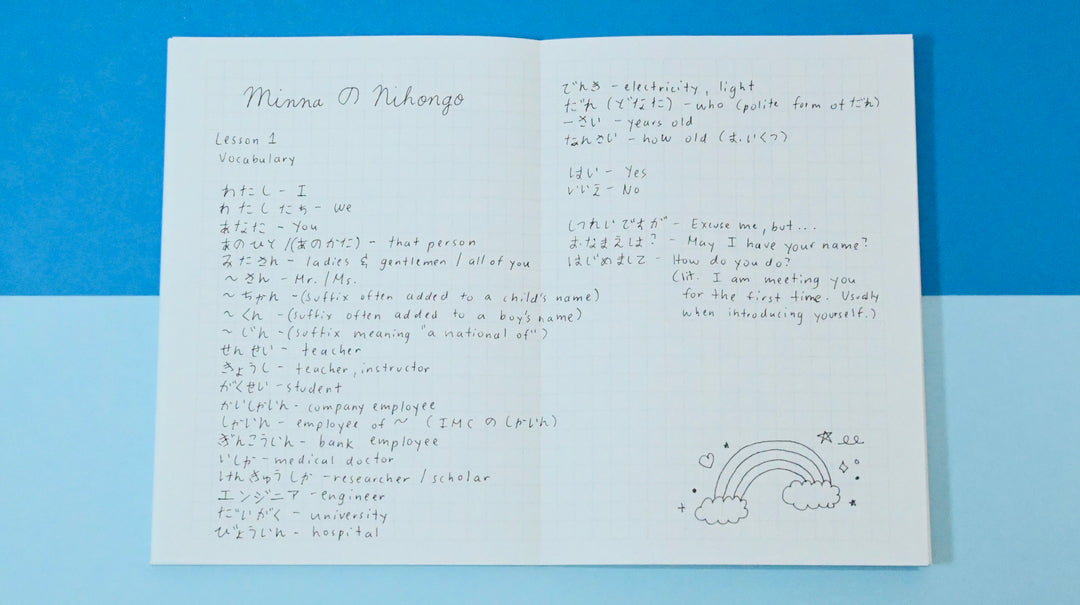 Minna の Nihongo
Lesson 1
Vocabulary
わたし - I
わたしたち - we
あなた - You
あのひと/(あのかた) - that person
みなさん - ladies & gentlemen / all of you
～さん - Mr. / Ms.
～ちゃん - (suffix often added to a child's name)
～くん - (suffix often added to a boy's name)
～じん - (suffix meaning "a national of")
せんせい - teacher
きょうし - teacher, instructor
がくせい - student
かいしゃいん - company employee
しゃいん - employee of ～ (IMC の しゃいん)
ぎんこういん - bank employee
いしゃ - medical doctor
けんきゅうしゃ - researcher / scholar
エンジニア - engineer
だいがく - university
びょういん - hospital
でんき - electricity, light
だれ (どなた) - who (polite form of だれ)
ーさい - years old
なんさい - how old (お.いくつ)
はい - Yes
いいえ - No
しつれいですが - Excuse me, but...
お.なまえは? - May I have your name?
はじめまして - How do you do?
(lit. I am meeting you
for the first time. Usually
when introducing yourself.)